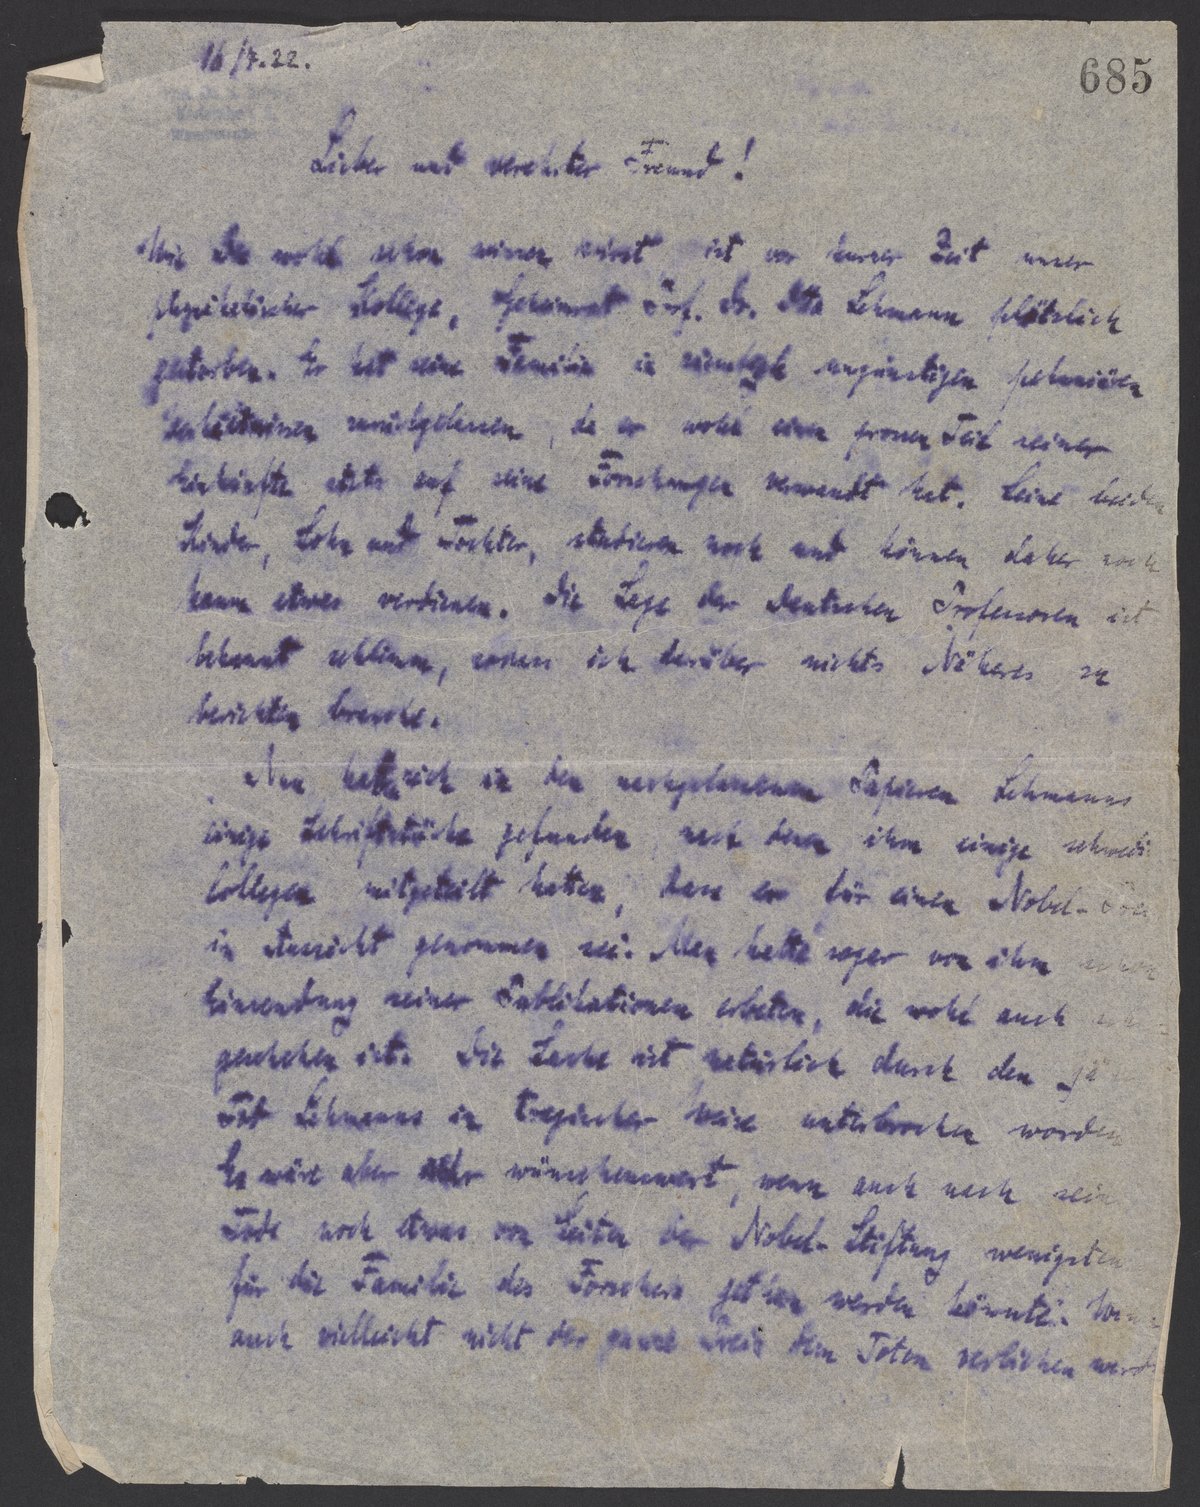 16/7.22.
685
Lieber und verehrter Freund!
Wie Du wohl schon wissen wirst, ist vor kurzer Zeit unser
physikalischer Kollege, Geheimrat Prof. Dr. Otto Lehmann plötzlich
gestorben. Er hat seine Familie in ziemlich ungünstigen pekuniären
Verhältnissen zurückgelassen, da er wohl einen grossen Teil seiner
Einkünfte stets auf seine Forschungen verwandt hat. Seine beiden
Kinder, Sohn und Tochter, studieren noch und können daher noch
kaum etwas verdienen. Die Lage der Deutschen Professoren ist
bekannt schlimm, sodass ich darüber nichts Näheres zu
berichten brauche.
Nun hat sich in den nachgelassenen Papieren Lehmanns
einige Schriftstücke gefunden, nach denen ihm einige schwedi
Collegen mitgeteilt hatten, dass er für einen Nobel-Preis
in Aussicht genommen sei. Man hatte sogar von ihm schon
Einsendung seiner Publikationen erbeten, die wohl auch
geschehen ist. Die Sache ist natürlich durch den jä
Tod Lehmanns in tragischer Weise unterbrochen worden
Es wäre aber sehr wünschenswert, wenn auch nach sein
Tode noch etwas von Seiten der Nobel-Stiftung wenigsten
für die Familie des Forschers gethan werden könnte. Wenn
auch vielleicht nicht der ganze Preis dem Toten verliehen werd